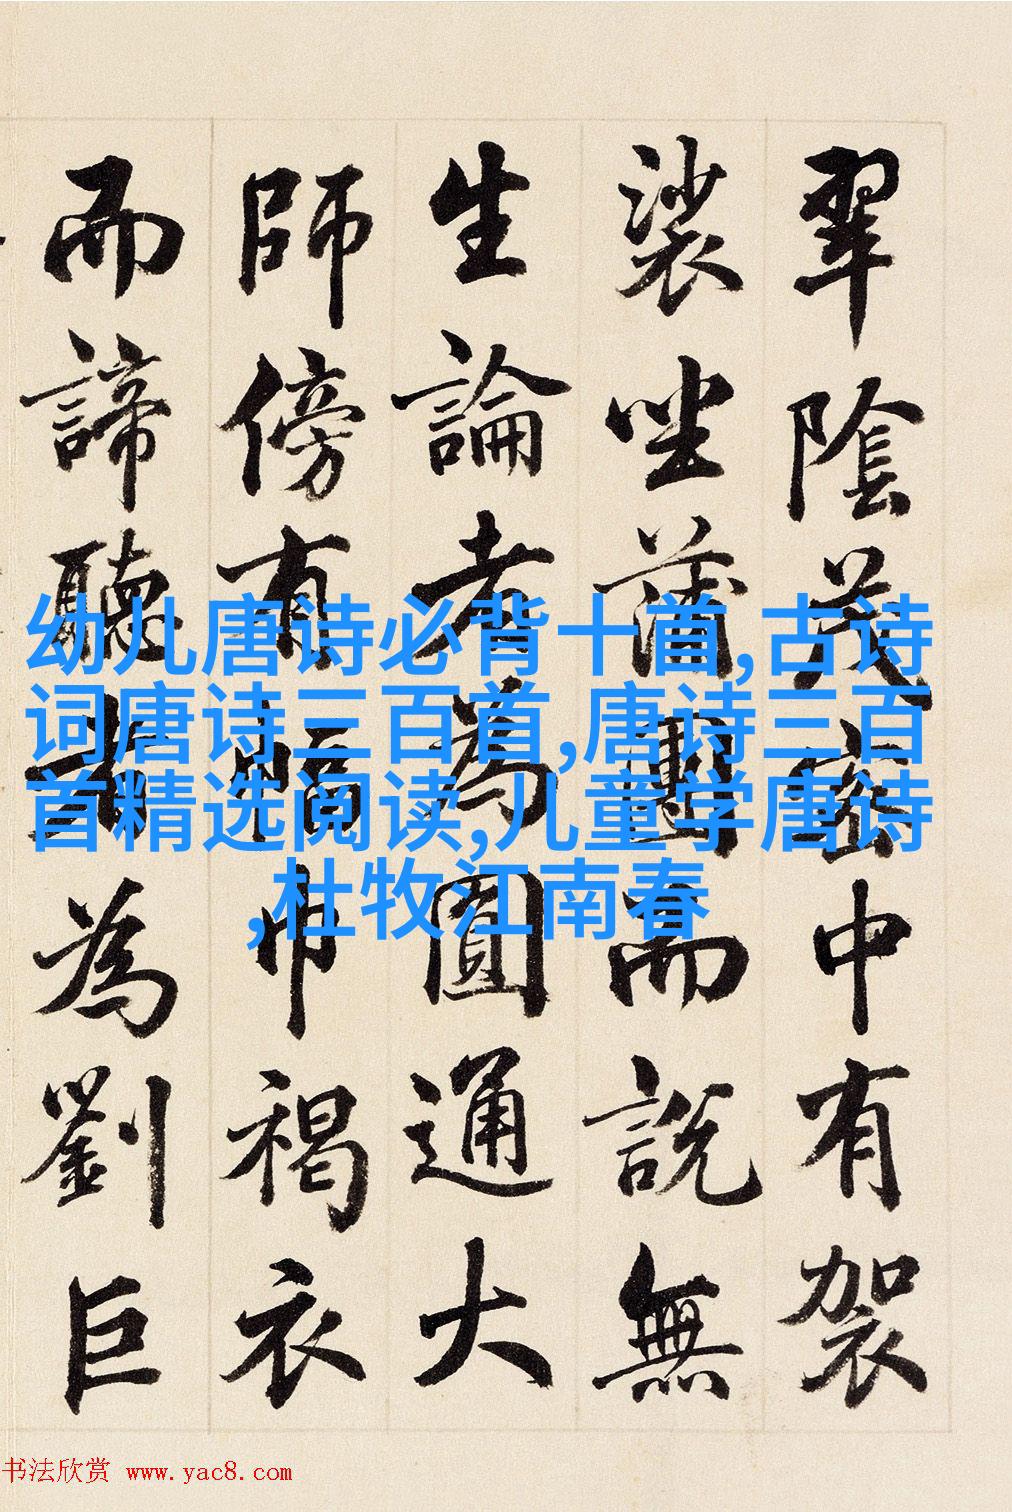 翠陰茂密中有袈
裟坐蒲團而說無
生論者為圓通大
師傍有幅巾褐衣
而諦聽者為劉巨
幼儿唐诗必背十首,古诗
词唐诗三百首,唐诗三百
首精选阅读,儿童学唐诗
,杜牧江南春
书法欣赏 www.yac8.com